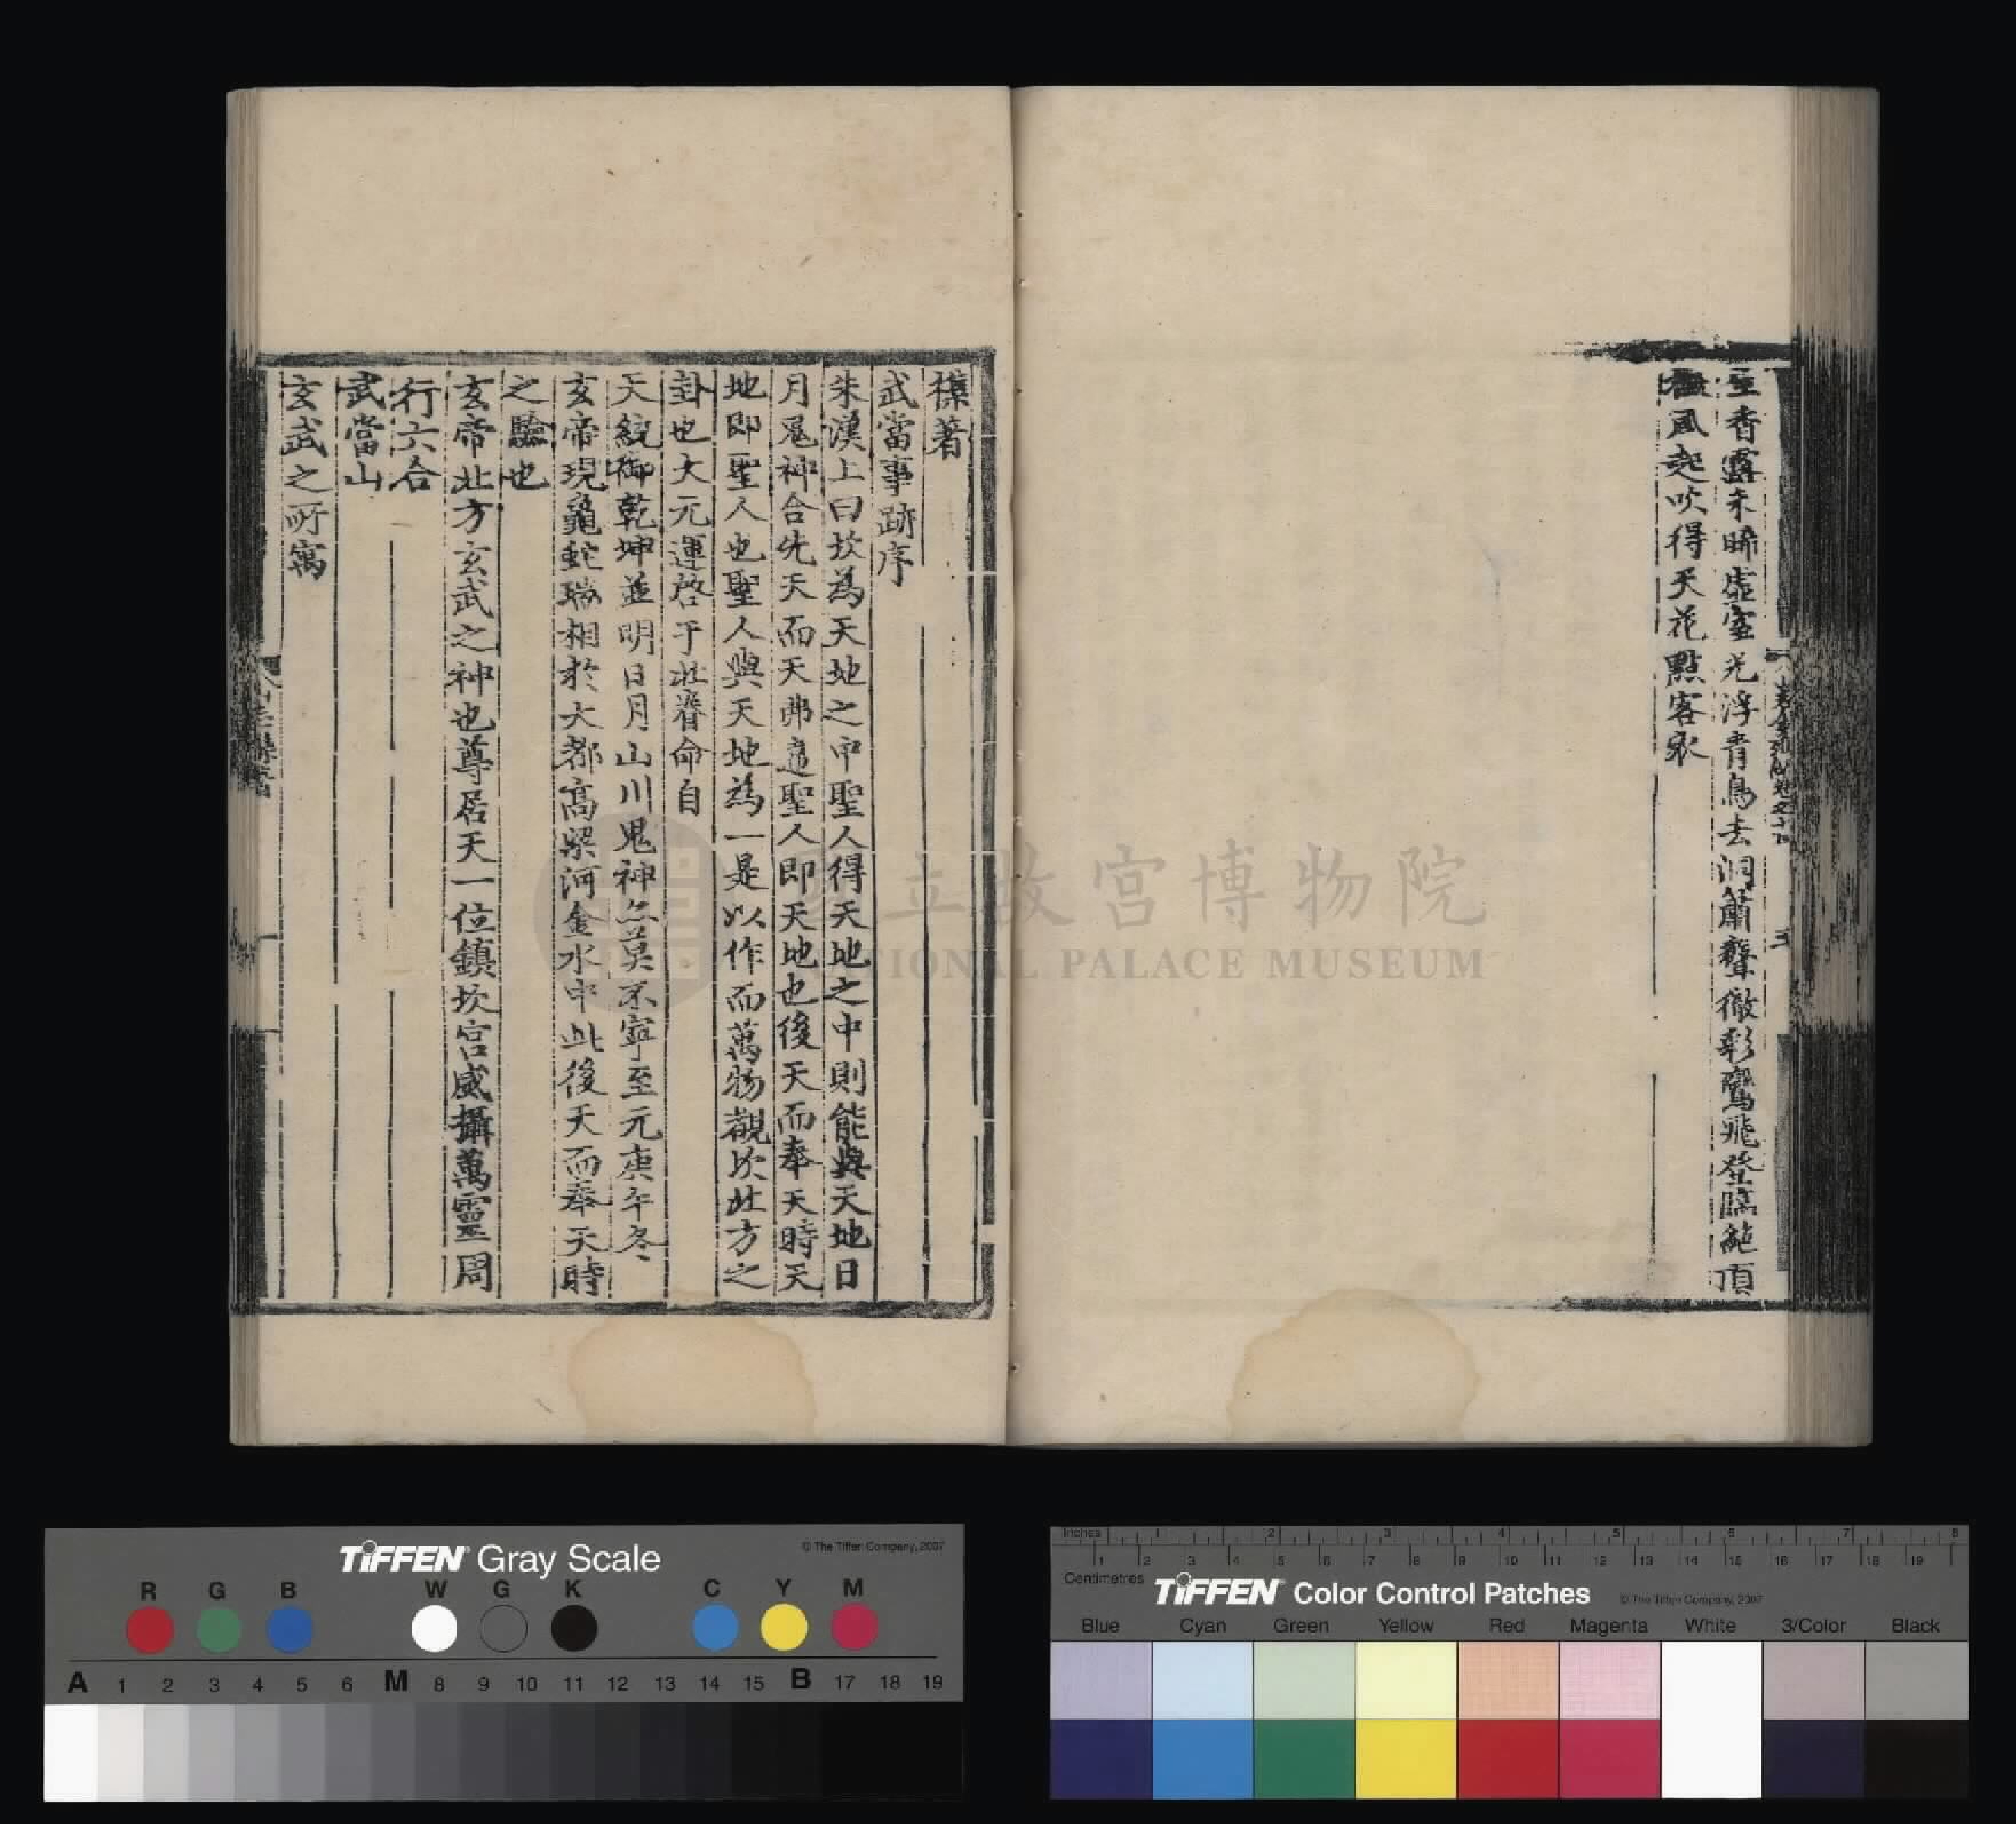 至香露未晞虛室光浮青鳥去洞簫聲徹彩鸞飛登臨絶頂
風起吹得天花點客衣
襍著
武當事跡序
朱漢上曰坎為天地之中聖人得天地之中則能與天地日
月鬼神合先天而天弗違聖人即天地也後天而奉天時天
地即聖人也聖人與天地為一是以作而萬物觀坎北方之
卦也大元運啓于北眷命自
天統御乾坤並明日月山川鬼神亦莫不寧至元庚午冬
玄帝現龜蛇瑞相於大都高梁河金水中此後天而奉天時
之驗也
玄帝北方玄武之神也尊居天一位鎮坎宫威攝萬靈周
行六合
武當山
玄武之所寓
國立故宮博物院
NATIONAL PALACE MUSEUM
TIFFEN Gray Scale
© The Tiffen Company, 2007
R G B W G K C Y M
A 1 2 3 4 5 6 M 8 9 10 11 12 13 14 15 B 17 18 19
Inches 1 2 3 4 5 6 7 8
1 2 3 4 5 6 7 8 9 10 11 12 13 14 15 16 17 18 19
Centimetres
TIFFEN Color Control Patches
© The Tiffen Company, 2007
Blue Cyan Green Yellow Red Magenta White 3/Color Black